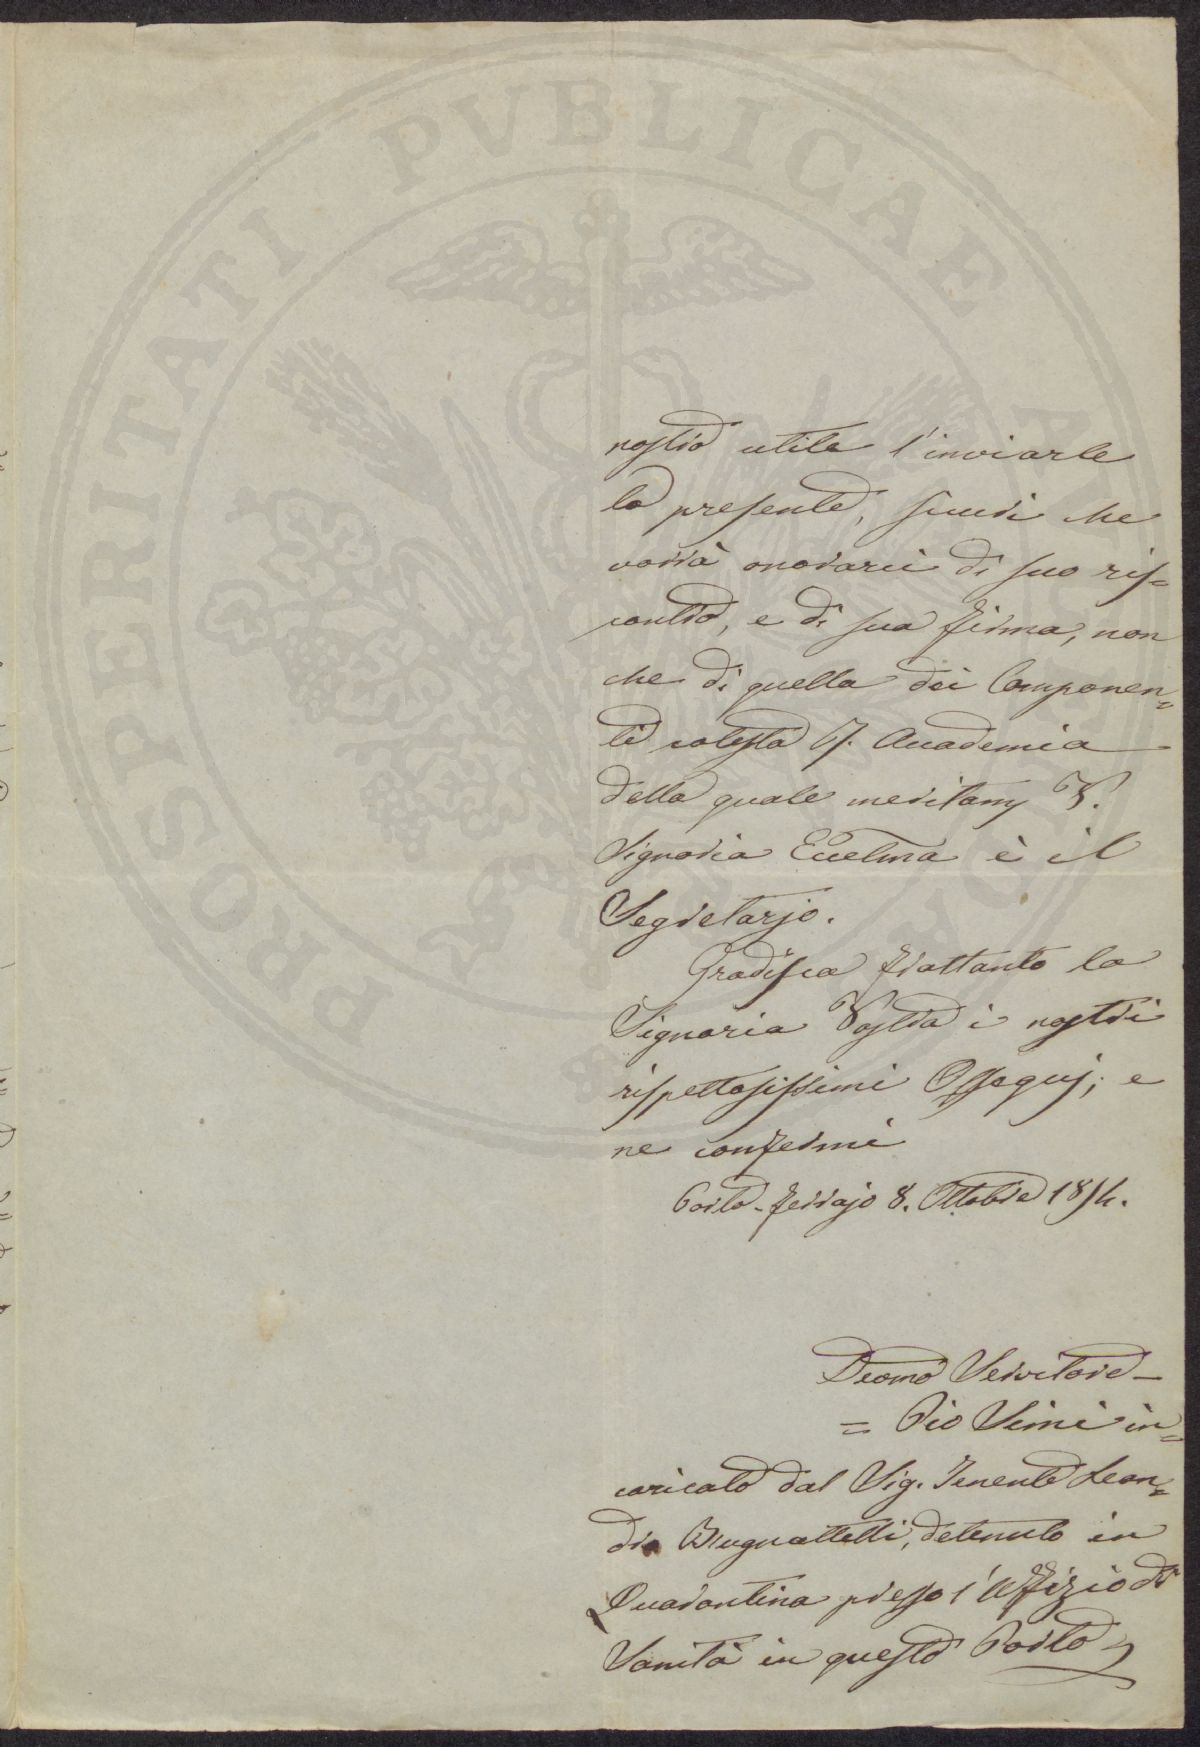 nostro utile l'inviarle
la presente, sicuri che
vorrà onorarci di suo ris=
contro, e di sua firma, non
che di quella dei Componen=
ti cotesta I. Accademia
della quale meritamy V.
Signoria Eccelma è il
Segretarjo.
Gradisca frattanto la
Signoria Vostra i nostri
rispettosissimi Ossequj; e
ne confermi
Porto-ferrajo 8. Ottobre 1854.
Deomo Servitore -
= Pio Simi in=
caricato dal Sig. Tenente Lean=
dro Brugnattelli, detenuto in
Quarantina presso l'Uffizio di
Sanità in questo Porto
PROSPERITATI PVBLICAE